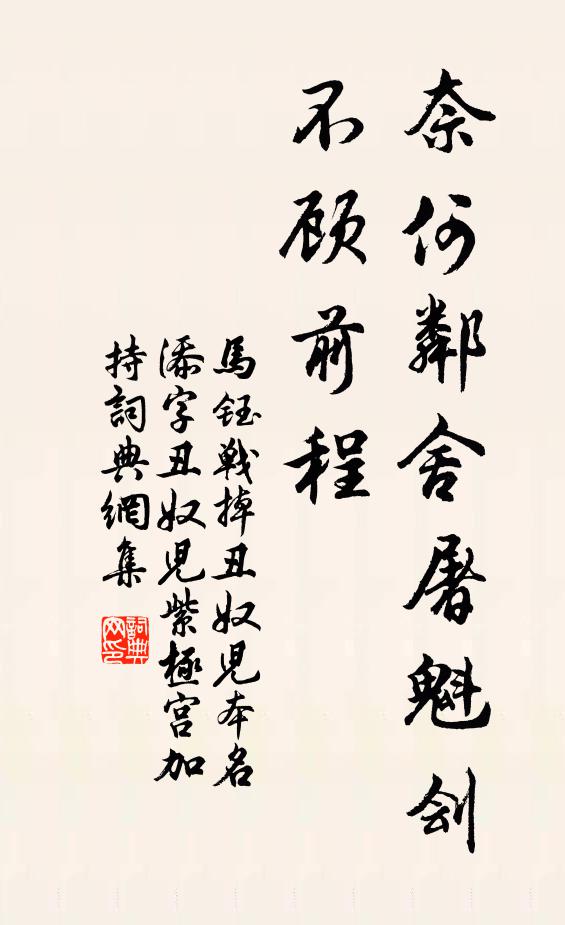 奈何鄰舍屠魁刽
不顾前程
馬鈺戰掉丑奴児本名
添字丑奴児紫極宫加
持詞典網集
詞典网印